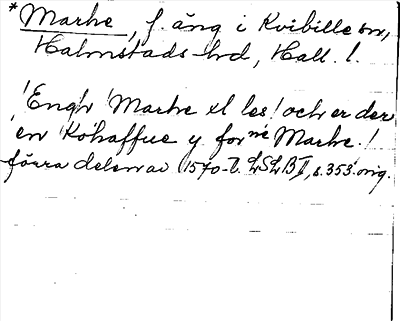 *Marke, f. äng i Kvibille sn,
Halmstads hd, Hall. l.
"Engh Marke xl les! och er der
en Kohaffue y for ne Marke."
förra delen av 1570-t. LSLB II, s. 353 orig.